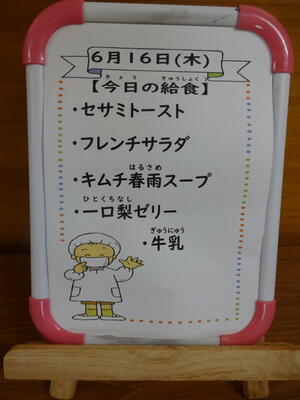 6月16日(木)
きょう きゅうしょく
【今日の給食】
・セサミトースト
・フレンチサラダ
はるさめ
・キムチ春雨スープ
ひとくちなし
・一口梨ゼリー
ぎゅうにゅう
・牛乳